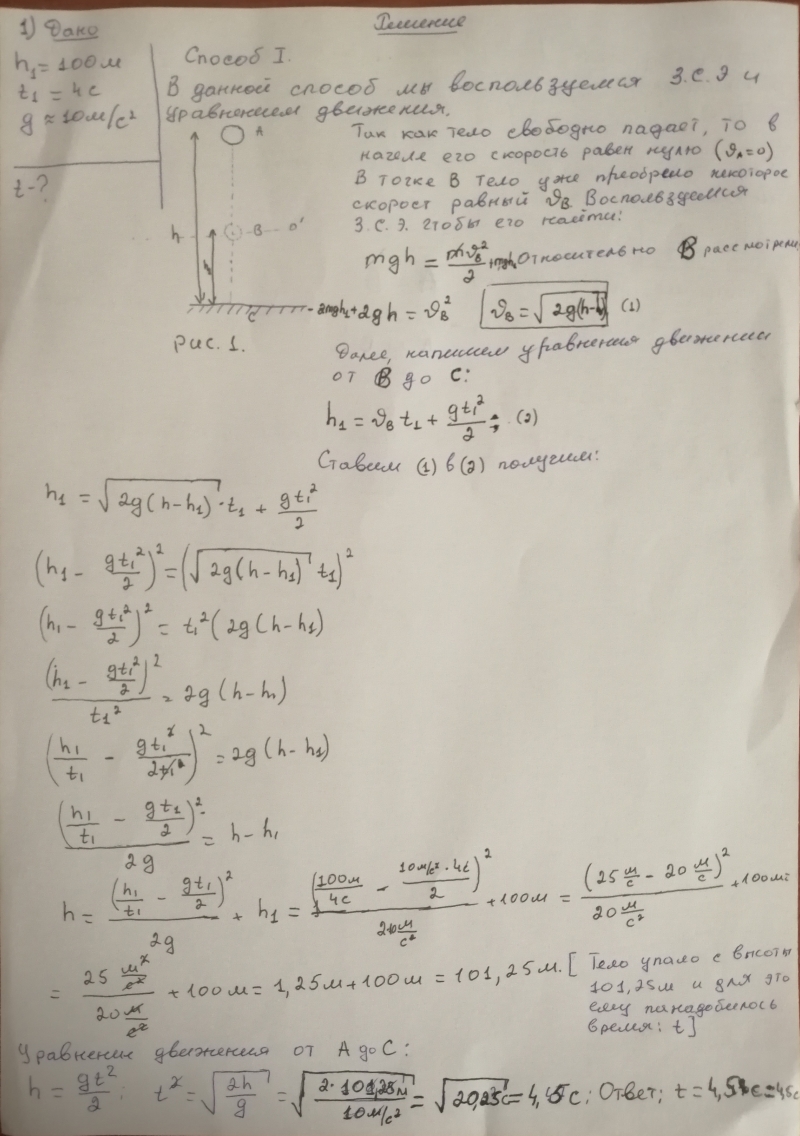 1) Дано
Решение
h₁ = 100м
t₁ = 4с
g ≈ 10м/с²
t - ?
Способ I.
В данной способ мы воспользуемся З.С.Э и
уравнением движения.
A
h
B o'
C
рис. 1.
Так как тело свободно падает, то в
начале его скорость равен нулю (𝜗ₐ=0)
В точке В тело уже преобрело некоторое
скорост равный 𝜗в. Воспользуемся
З.С.Э. чтобы его найти:
mgh = m𝜗в²/2 + mgh₁ относительно В
-2mgh₁+2gh = 𝜗в² 𝜗в = √2g(h-h₁) (1)
Далее, напишем уравнения движении
от В до С:
h₁ = 𝜗в t₁ + gt₁²/2; (2)
Ставим (1) в (2) получим:
h₁ = √2g(h-h₁) · t₁ + gt₁²/2
(h₁ - gt₁²/2)² = (√2g(h-h₁) t₁)²
(h₁ - gt₁²/2)² = t₁² (2g(h-h₁)
(h₁ - gt₁²/2)²/t₁² = 2g(h-h₁)
(h₁/t₁ - gt₁²/2t₁)² = 2g(h-h₁)
(h₁/t₁ - gt₁/2)²/2g = h-h₁
h = (h₁/t₁ - gt₁/2)²/2g + h₁ = (100м/4с - 10м/с²·4с/2)²/20м/с² + 100м = (25 м/с - 20 м/с)²/20 м/с² + 100м=
= 25 м²/с²/20 м/с² + 100м = 1,25м+100м = 101,25м. [Тело упало с высоты
101,25м и для это
ему панадобилось
время: t]
Уравнение движения от А до С:
h = gt²/2; t² = √2h/g = √2·101,25м/10м/с² = √20,25с = 4,5с; Ответ; t = 4,5с = 4,5с